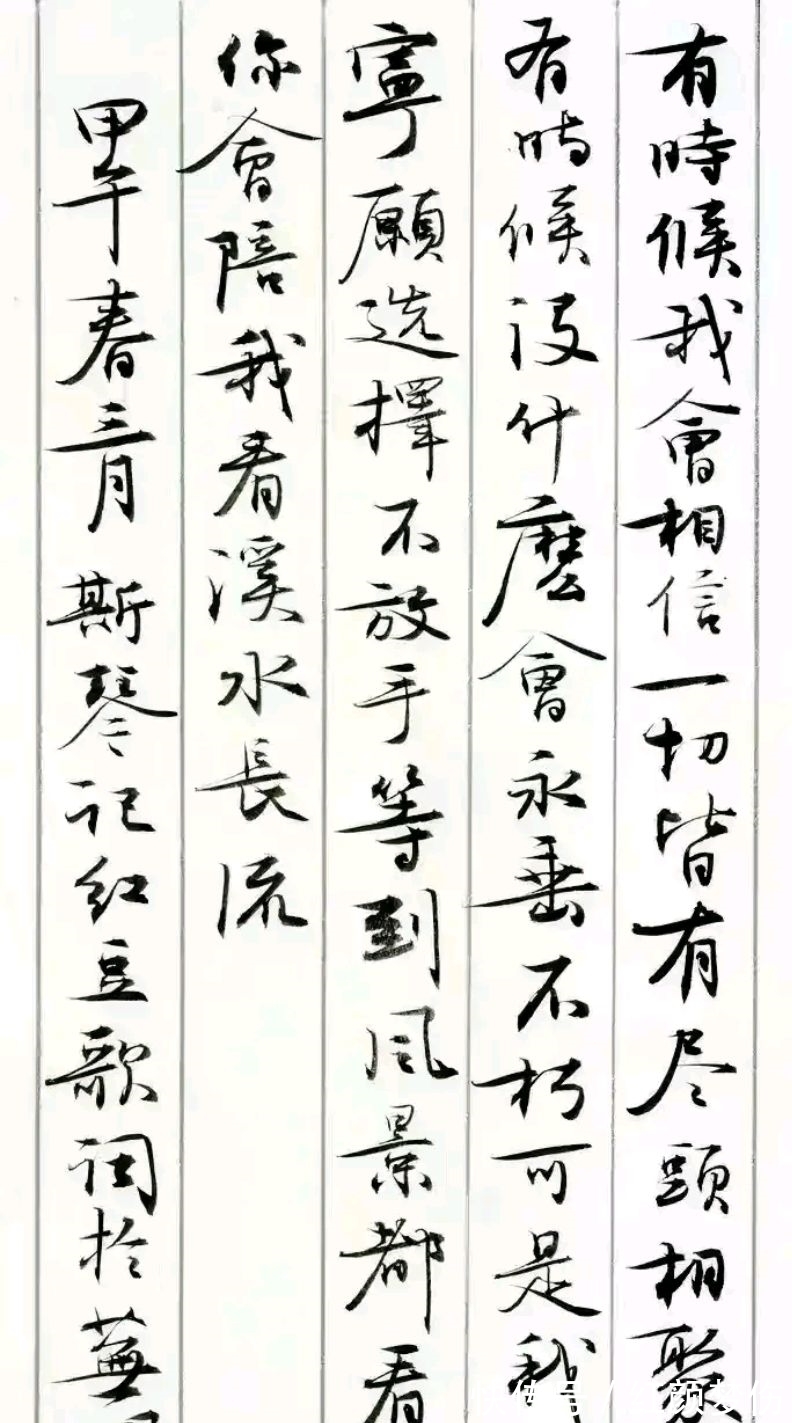 有時候我會相信一切皆有尽頭相聚
有時候没什麽會永垂不朽可是我
寧願选擇不放手等到风景都看
你會陪我看溪水長流
甲午春三月斯琴记红豆歌词於蕪